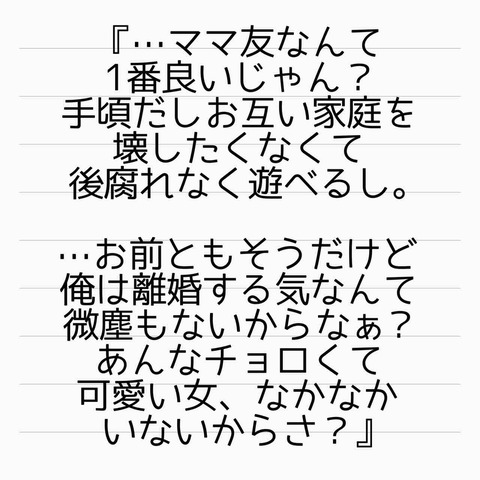 『…ママ友なんて
1番良いじゃん？
手頃だしお互い家庭を
壊したくなくて
後腐れなく遊べるし。
…お前ともそうだけど
俺は離婚する気なんて
微塵もないからなぁ？
あんなチョロくて
可愛い女、なかなか
いないからさ？』